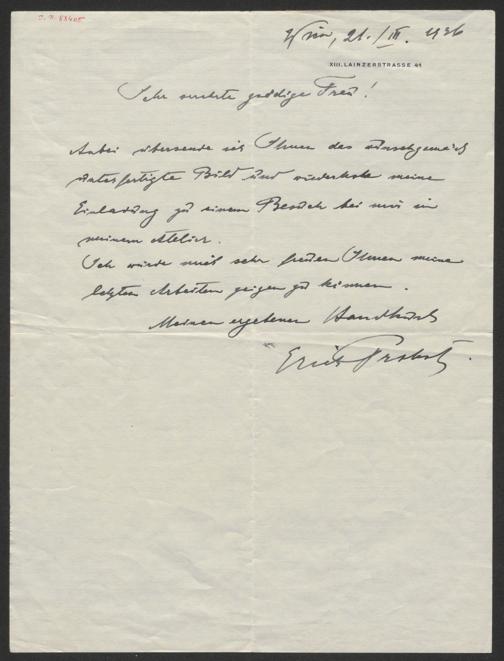 Wien, 21./III. 1936
XIII. LAINZERSTRASSE 41
Sehr verehrte gnädige Frau!
Anbei übersende ich Ihnen das wunschgemäß
unterfertigte Bild und wiederhole meine
Einladung zu einem Besuch bei mir in
meinem Atelier.
Ich würde mich sehr freuen Ihnen meine
letzten Arbeiten zeigen zu können.
Meinen ergebenen Handkuß
Erich Probst.